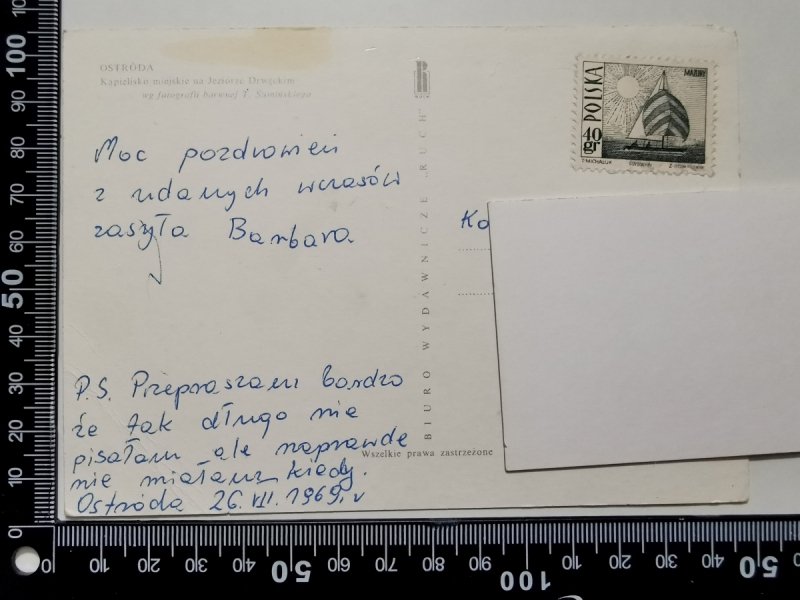 OSTRÓDA
Kąpielisko miejskie na Jeziorze Drwęckim
wg fotografii barwnej T. Sumińskiego
Moc pozdrowień
z udanych wczasów
zasyła Barbara
P.S. Przepraszam bardzo
że tak długo nie
pisałam ale naprawdę
nie miałam kiedy.
Ostróda 26.VII.1969r
BIURO WYDAWNICZE „RUCH"
Wszelkie prawa zastrzeżone
MAZURY
POLSKA
40 gr
T. MICHALUK
Ko
0 10 20 30 40 50 60 70 80 90 100
0 10 20 30 40 50 60 70 80 90 100 10 20 30 40